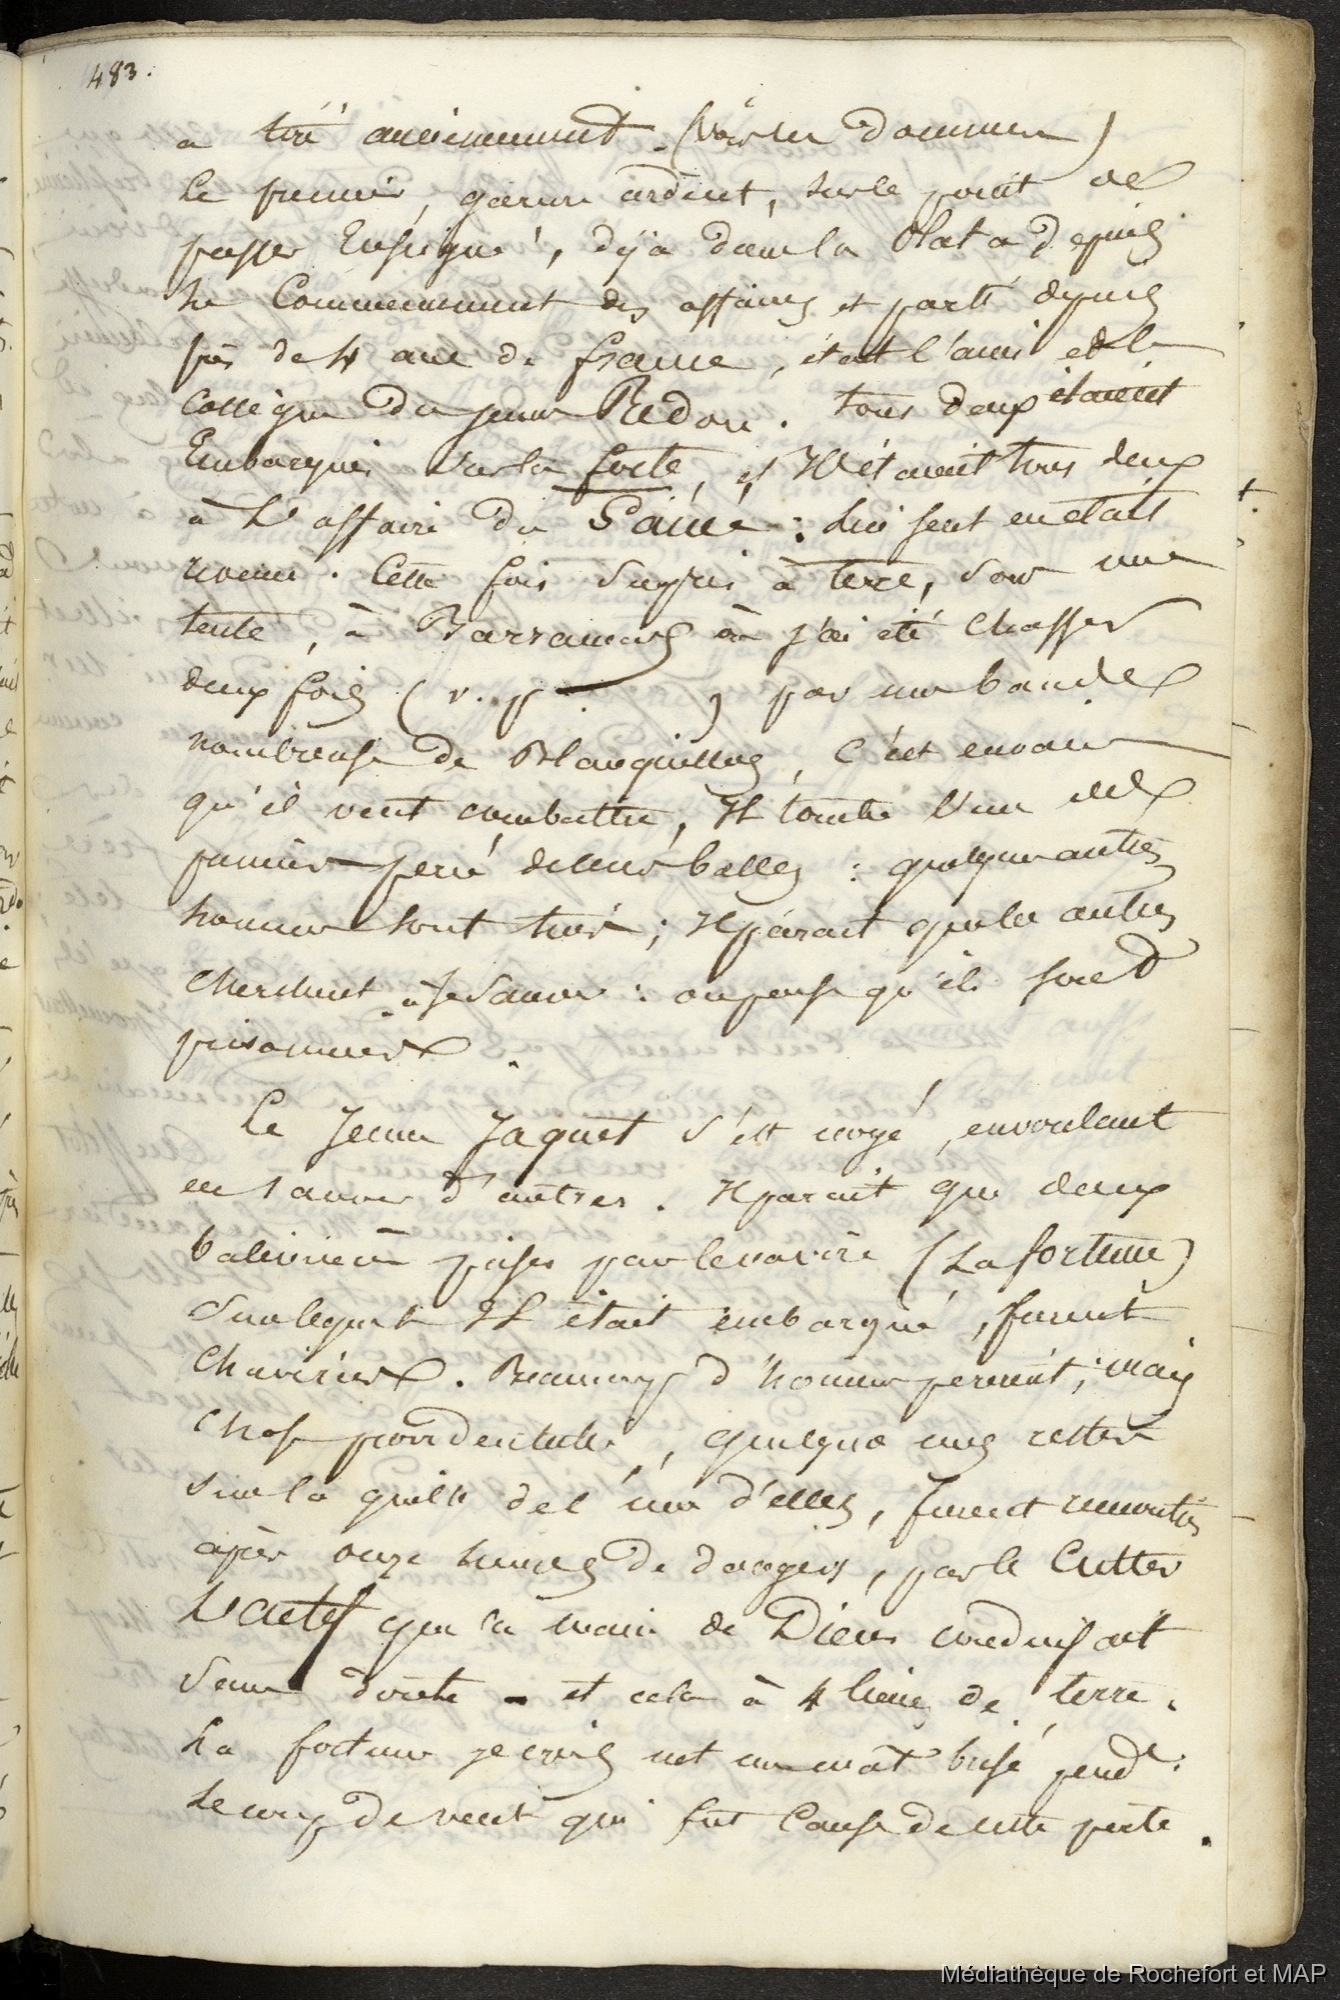 483.
a tiré anciennement. (voir les données)
Le premier, garçon ardent, sur le point de
passer Enseigne, déjà dans la Plata depuis
le Commencement des affaires et parti depuis
près de 4 ans de france, était l'ami et le
collègue du jeune Redon. tous deux étaient
Embarqués sur la forte, et Ils étaient tous deux
à L'affaire du : lui seul en était
revenu. Cette fois surpris à terre, sous une
tente, à où j'ai été chasser
deux fois (v. p ) par une bande
nombreuse de Blanquillos, C'est envain
qu'il veut combattre, Il tombe l'un des
premiers percé de leurs balles : quelques autres
hommes sont tués; Il parait que les autres
cherchent à se sauver : on pense qu'ils sont
prisonniers.
Le Jeune Jaquet s'est noyé, en voulant
en sauver d'autres. Il parait que deux
baleinières prises par le navire (La fortune)
sur lequel Il était embarqué, furent
chavirées. Beaucoup d'hommes périrent; mais
chose providentielle, quelques uns restés
sur la quille de l'une d'elles, furent rencontrés
après onze heures de dangers, par le Cutter
que la main de Dieu conduisait
sans doute - et cela à 4 lieues de terre.
La fortune je crois eut un mât brisé pend.t
le coup de vent qui fut Cause de cette perte.
+.
Médiathèque de Rochefort et MAP